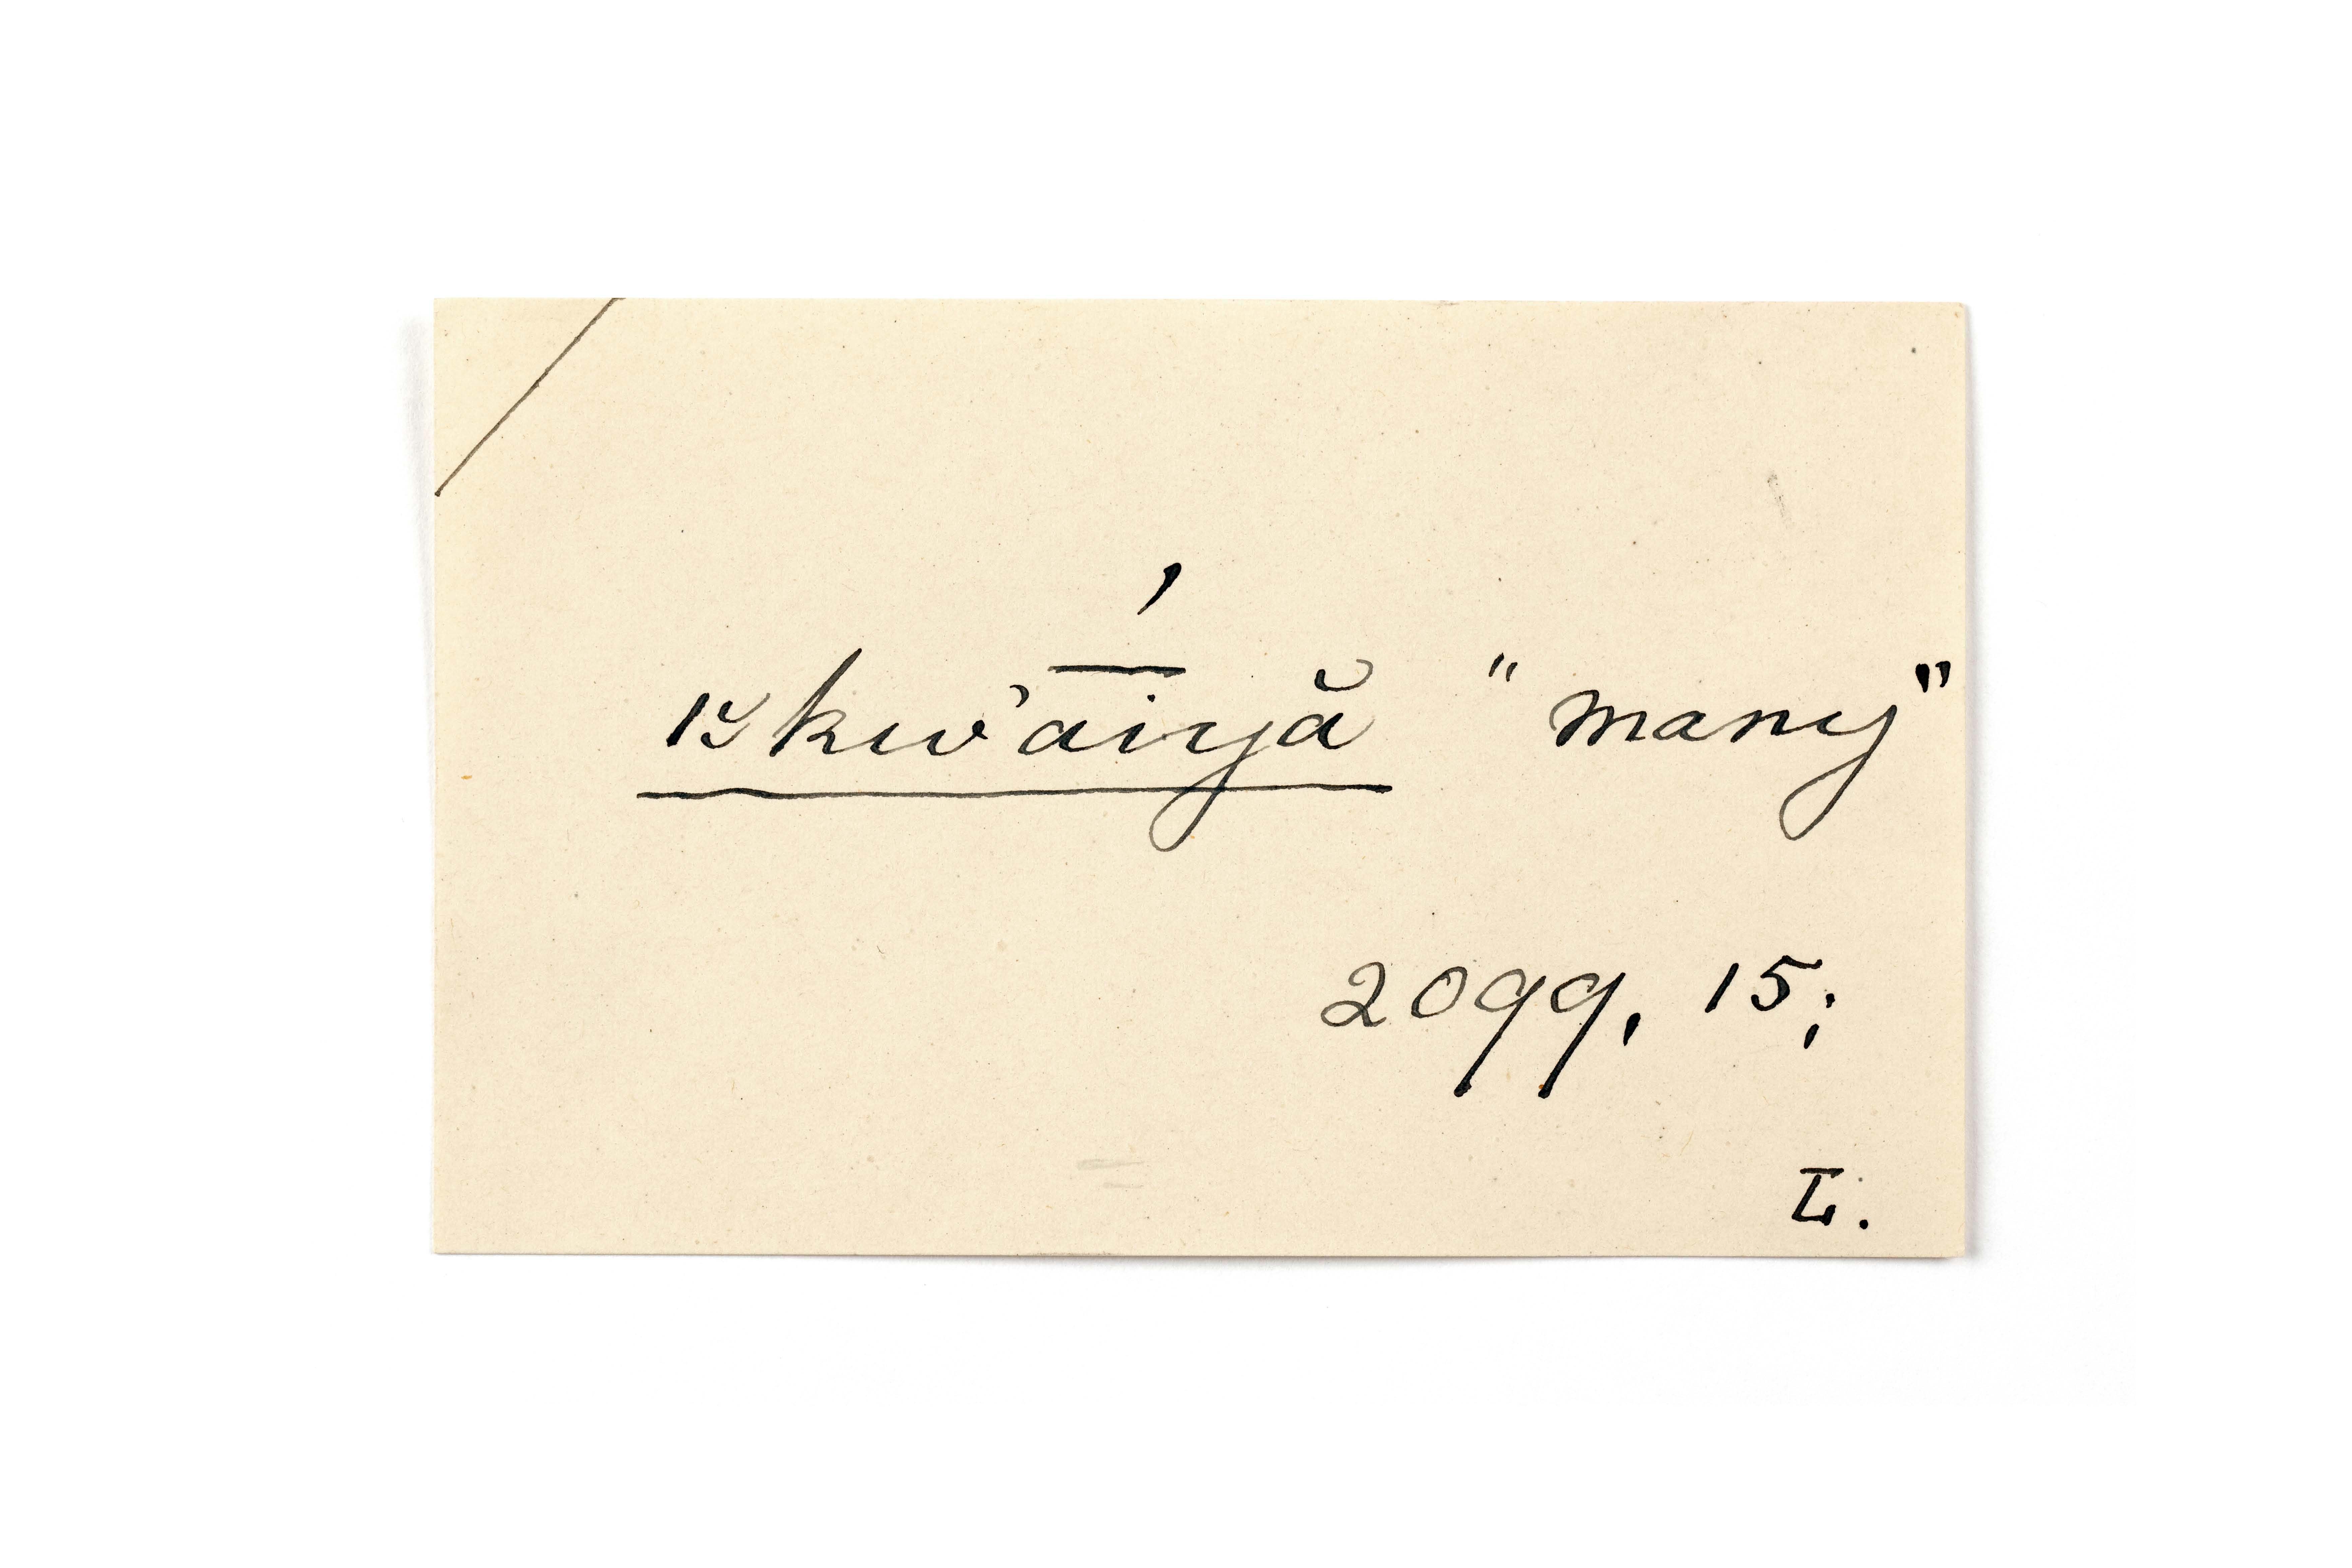 ɪškwʾā́iyă "many"
2099, 15;
L.